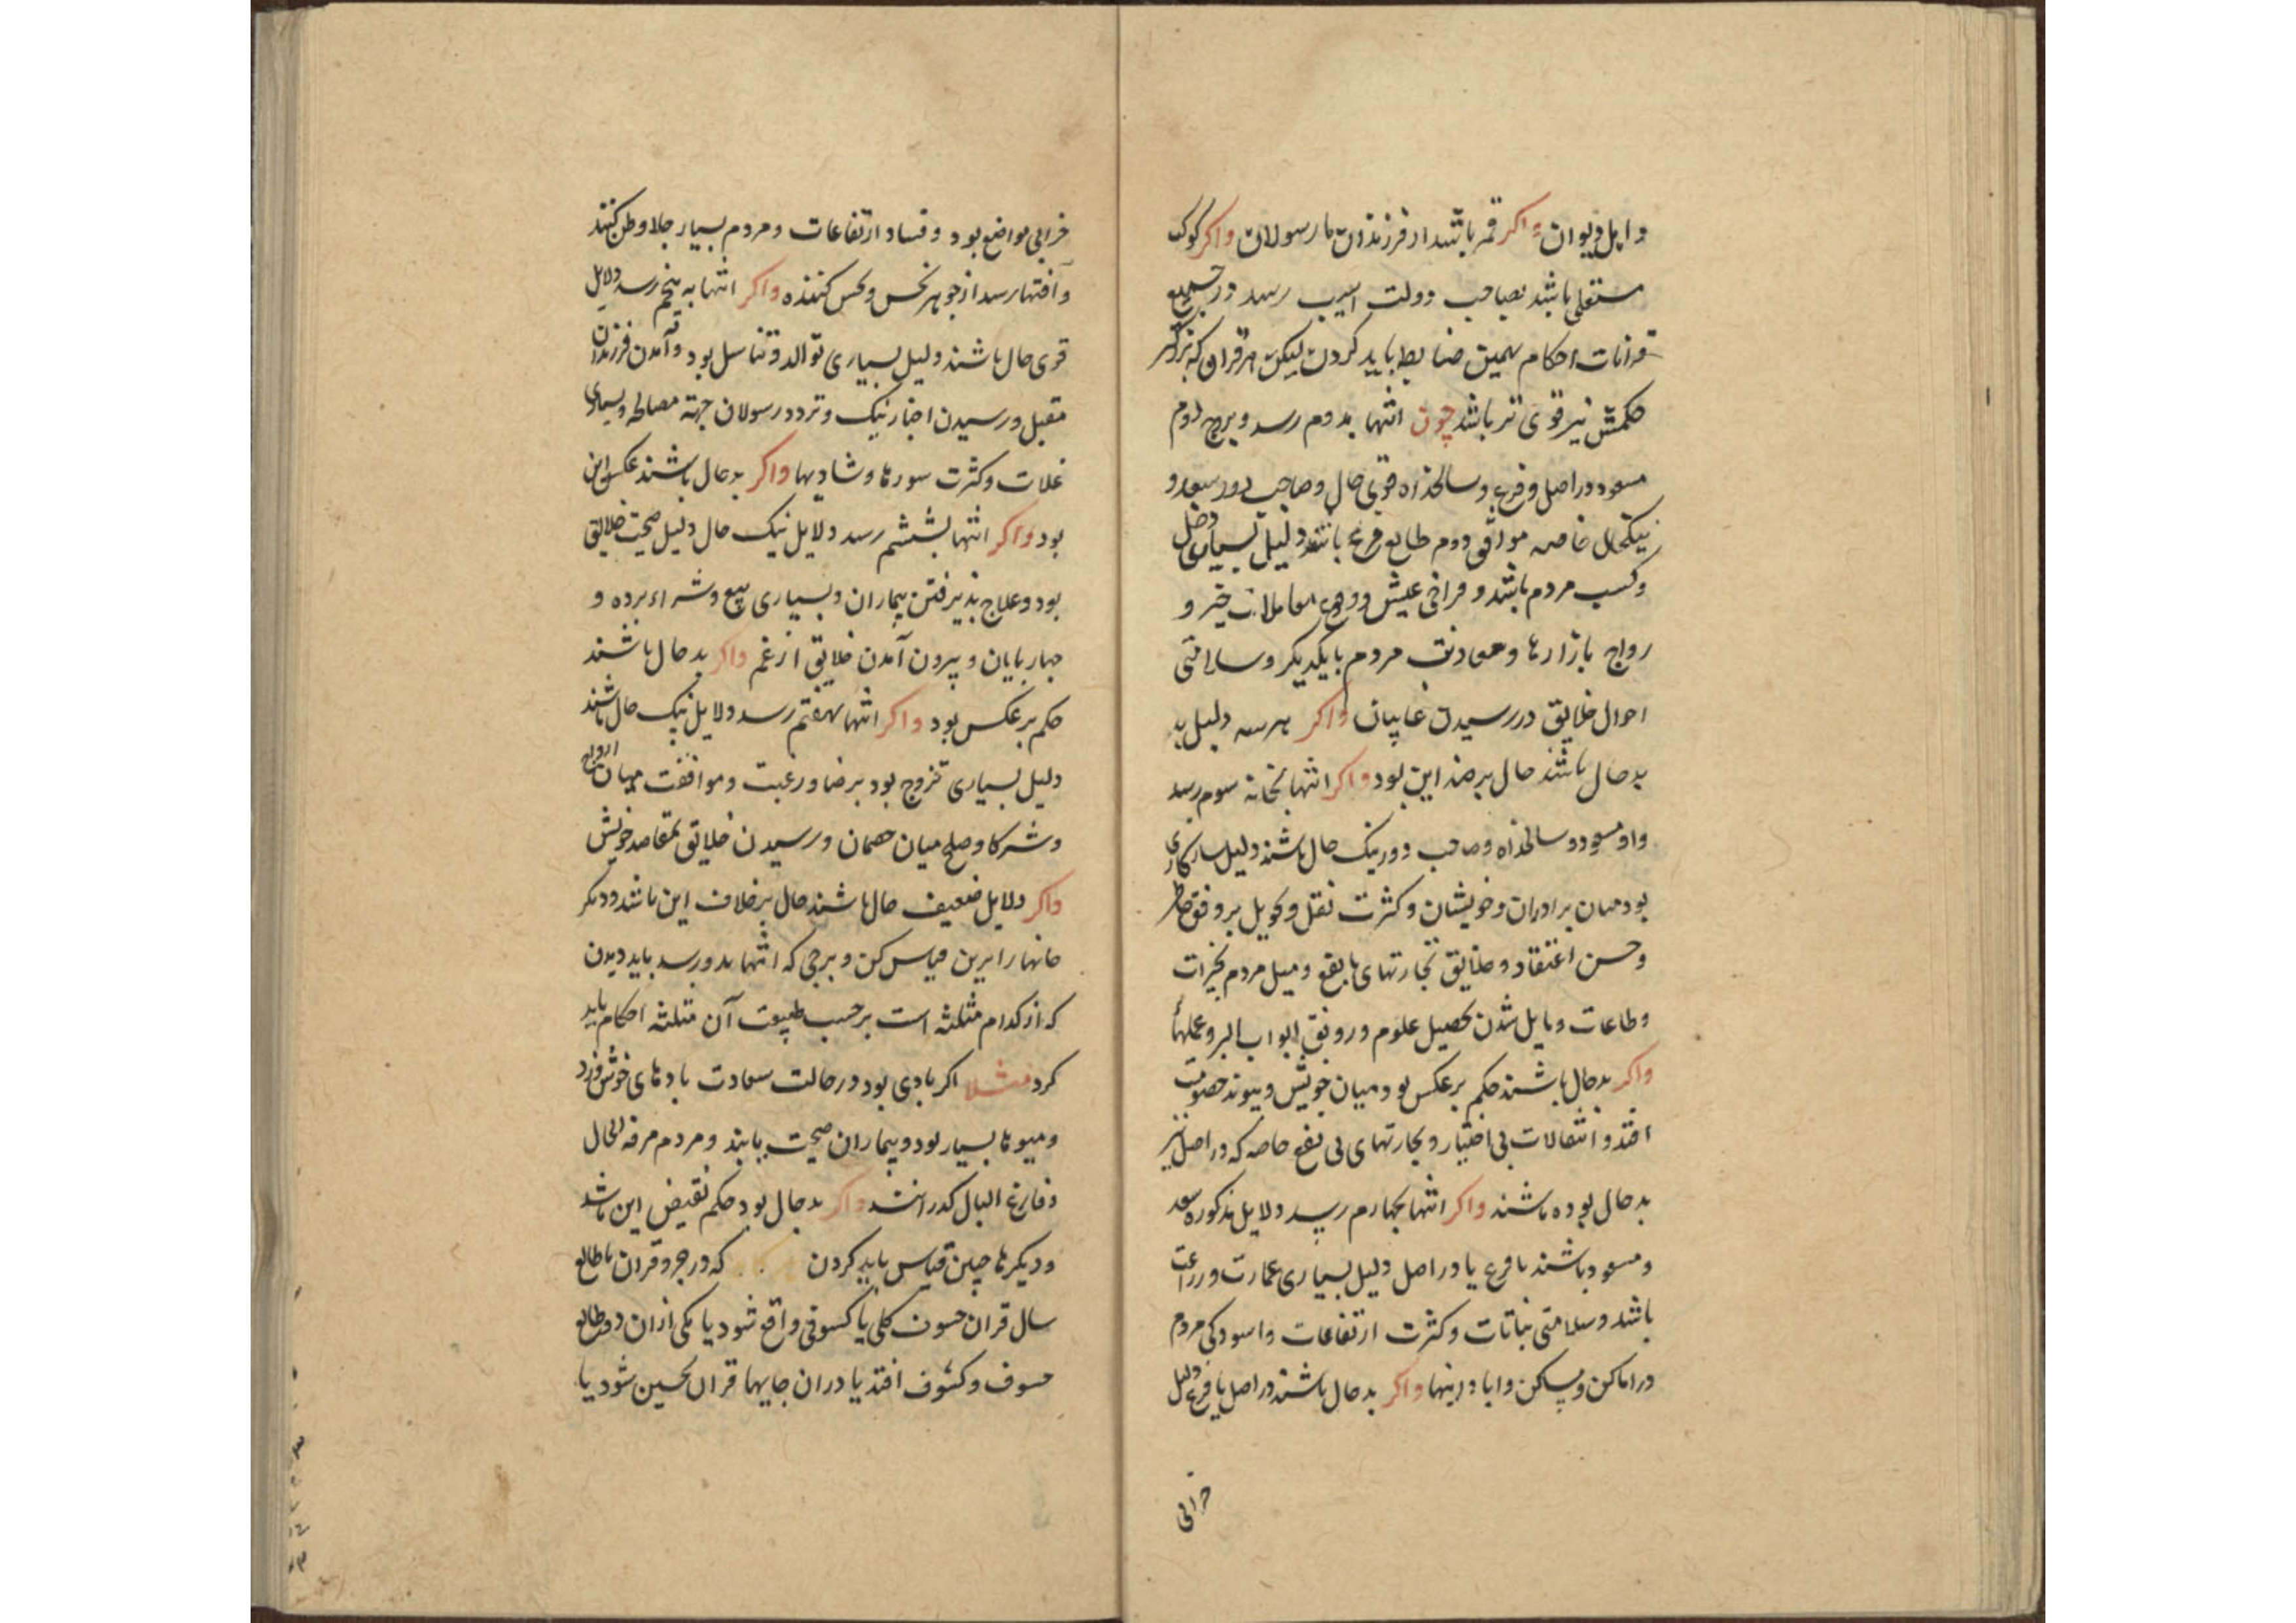 و اهل دیوان واکر قمر باشد از فرزندان یا رسولان واکر کوکب
مستعلی باشد بصاحب دولت اسیب رسد و در جمیع
قرانات احکام بهمین ضابطه باید کردن لیکن هر قران که بزرکتر
حکمش نیز قوی تر باشد چون انتها بدوم رسد و برج دوم
مسعود در اصل و فرع و سالخداه قوی حال و صاحب دور سعد و
نیکحال خاصه موافق دوم طالع فرع باشد دلیل بسیاری دخل
و کسب مردم باشد و فراخی عیش و وجوه معاملات خیر و
رواج بازارها و معاونت مردم با یکدیکر و سلامتی
احوال خلایق در رسیدن غایبان واکر هر سه دلیل بد
بد حال باشند حال بر ضد این بود واکر انتها بخانه سوم رسد
و او مسعود و سالخداه و صاحب دور نیک حال باشند دلیل سازکاری
بود میان برادران و خویشان و کثرت نقل و تحویل بر وفق خاطر
و حسن اعتقاد و خلایق تجارتهای با نفع و میل مردم بخیرات
و طاعات و مایل شدن بتحصیل علوم و رونق ابواب البر و عملها
واکر بد حال باشند حکم بر عکس بود میان خویش و پیوند خصومت
افتد و انتقالات بی اختیار و تجارتهای بی نفع خاصه که در اصل نیز
بد حال بوده باشند واکر انتها بچهارم رسد دلایل مذکوره سعد
و مسعود باشند با فرع یا در اصل دلیل بسیاری عمارت و زراعت
باشد و سلامتی نباتات و کثرت ارتفاعات و اسودکی مردم
در اماکن و مساکن و ابادانیها واکر بد حال باشند در اصل یا فرع دلیل
خرابی
خرابی مواضع بود و فساد ارتفاعات و مردم بسیار جلا وطن کنند
و آفتها رسد از جوهر نحس و نحس کننده واکر انتها به پنجم رسد و دلایل
قوی حال باشند دلیل بسیاری توالد و تناسل بود و آمدن فرزندان
مقبل و رسیدن اخبار نیک و تردد رسولان جهة مصالحه و بسیاری
غلات و کثرت سورها و شادیها واکر بد حال باشند عکس این
بود واکر انتها بششم رسد دلایل نیک حال دلیل صحت خلایق
بود و علاج پذیرفتن بیماران و بسیاری بیع و شراء برده و
جهارپایان و بیرون آمدن خلایق از غم واکر بد حال باشند
حکم بر عکس بود واکر انتها بهفتم رسد و دلایل نیک حال باشند
دلیل بسیاری تزوج بود برضا و رغبت و موافقت میان ازواج
و شرکا و صلح میان خصمان و رسیدن خلایق بمقاصد خویش
واکر دلایل ضعیف حال باشند حال بر خلاف این باشد و دیکر
خانها را برین قیاس کن و برجی که انتها بدو رسد باید دیدن
که از کدام مثلثه است بر حسب طبیعت آن مثلثه احکام باید
کرد مثلا اکر بادی بود در حالت سعادت بادهای خوش وزد
و میوها بسیار بود و بیماران صحت یابند و مردم مرفه الحال
و فارغ البال کذرانند واکر بد حال بود حکم نقیض این باشد
و دیکرها چنین قیاس باید کردن که در جزو قران یا طالع
سال قران خسوف کلی یا کسوفی واقع شود یا یکی از ان دو طالع
خسوف و کسوف افتد یا در ان جایها قران نحسین شود یا